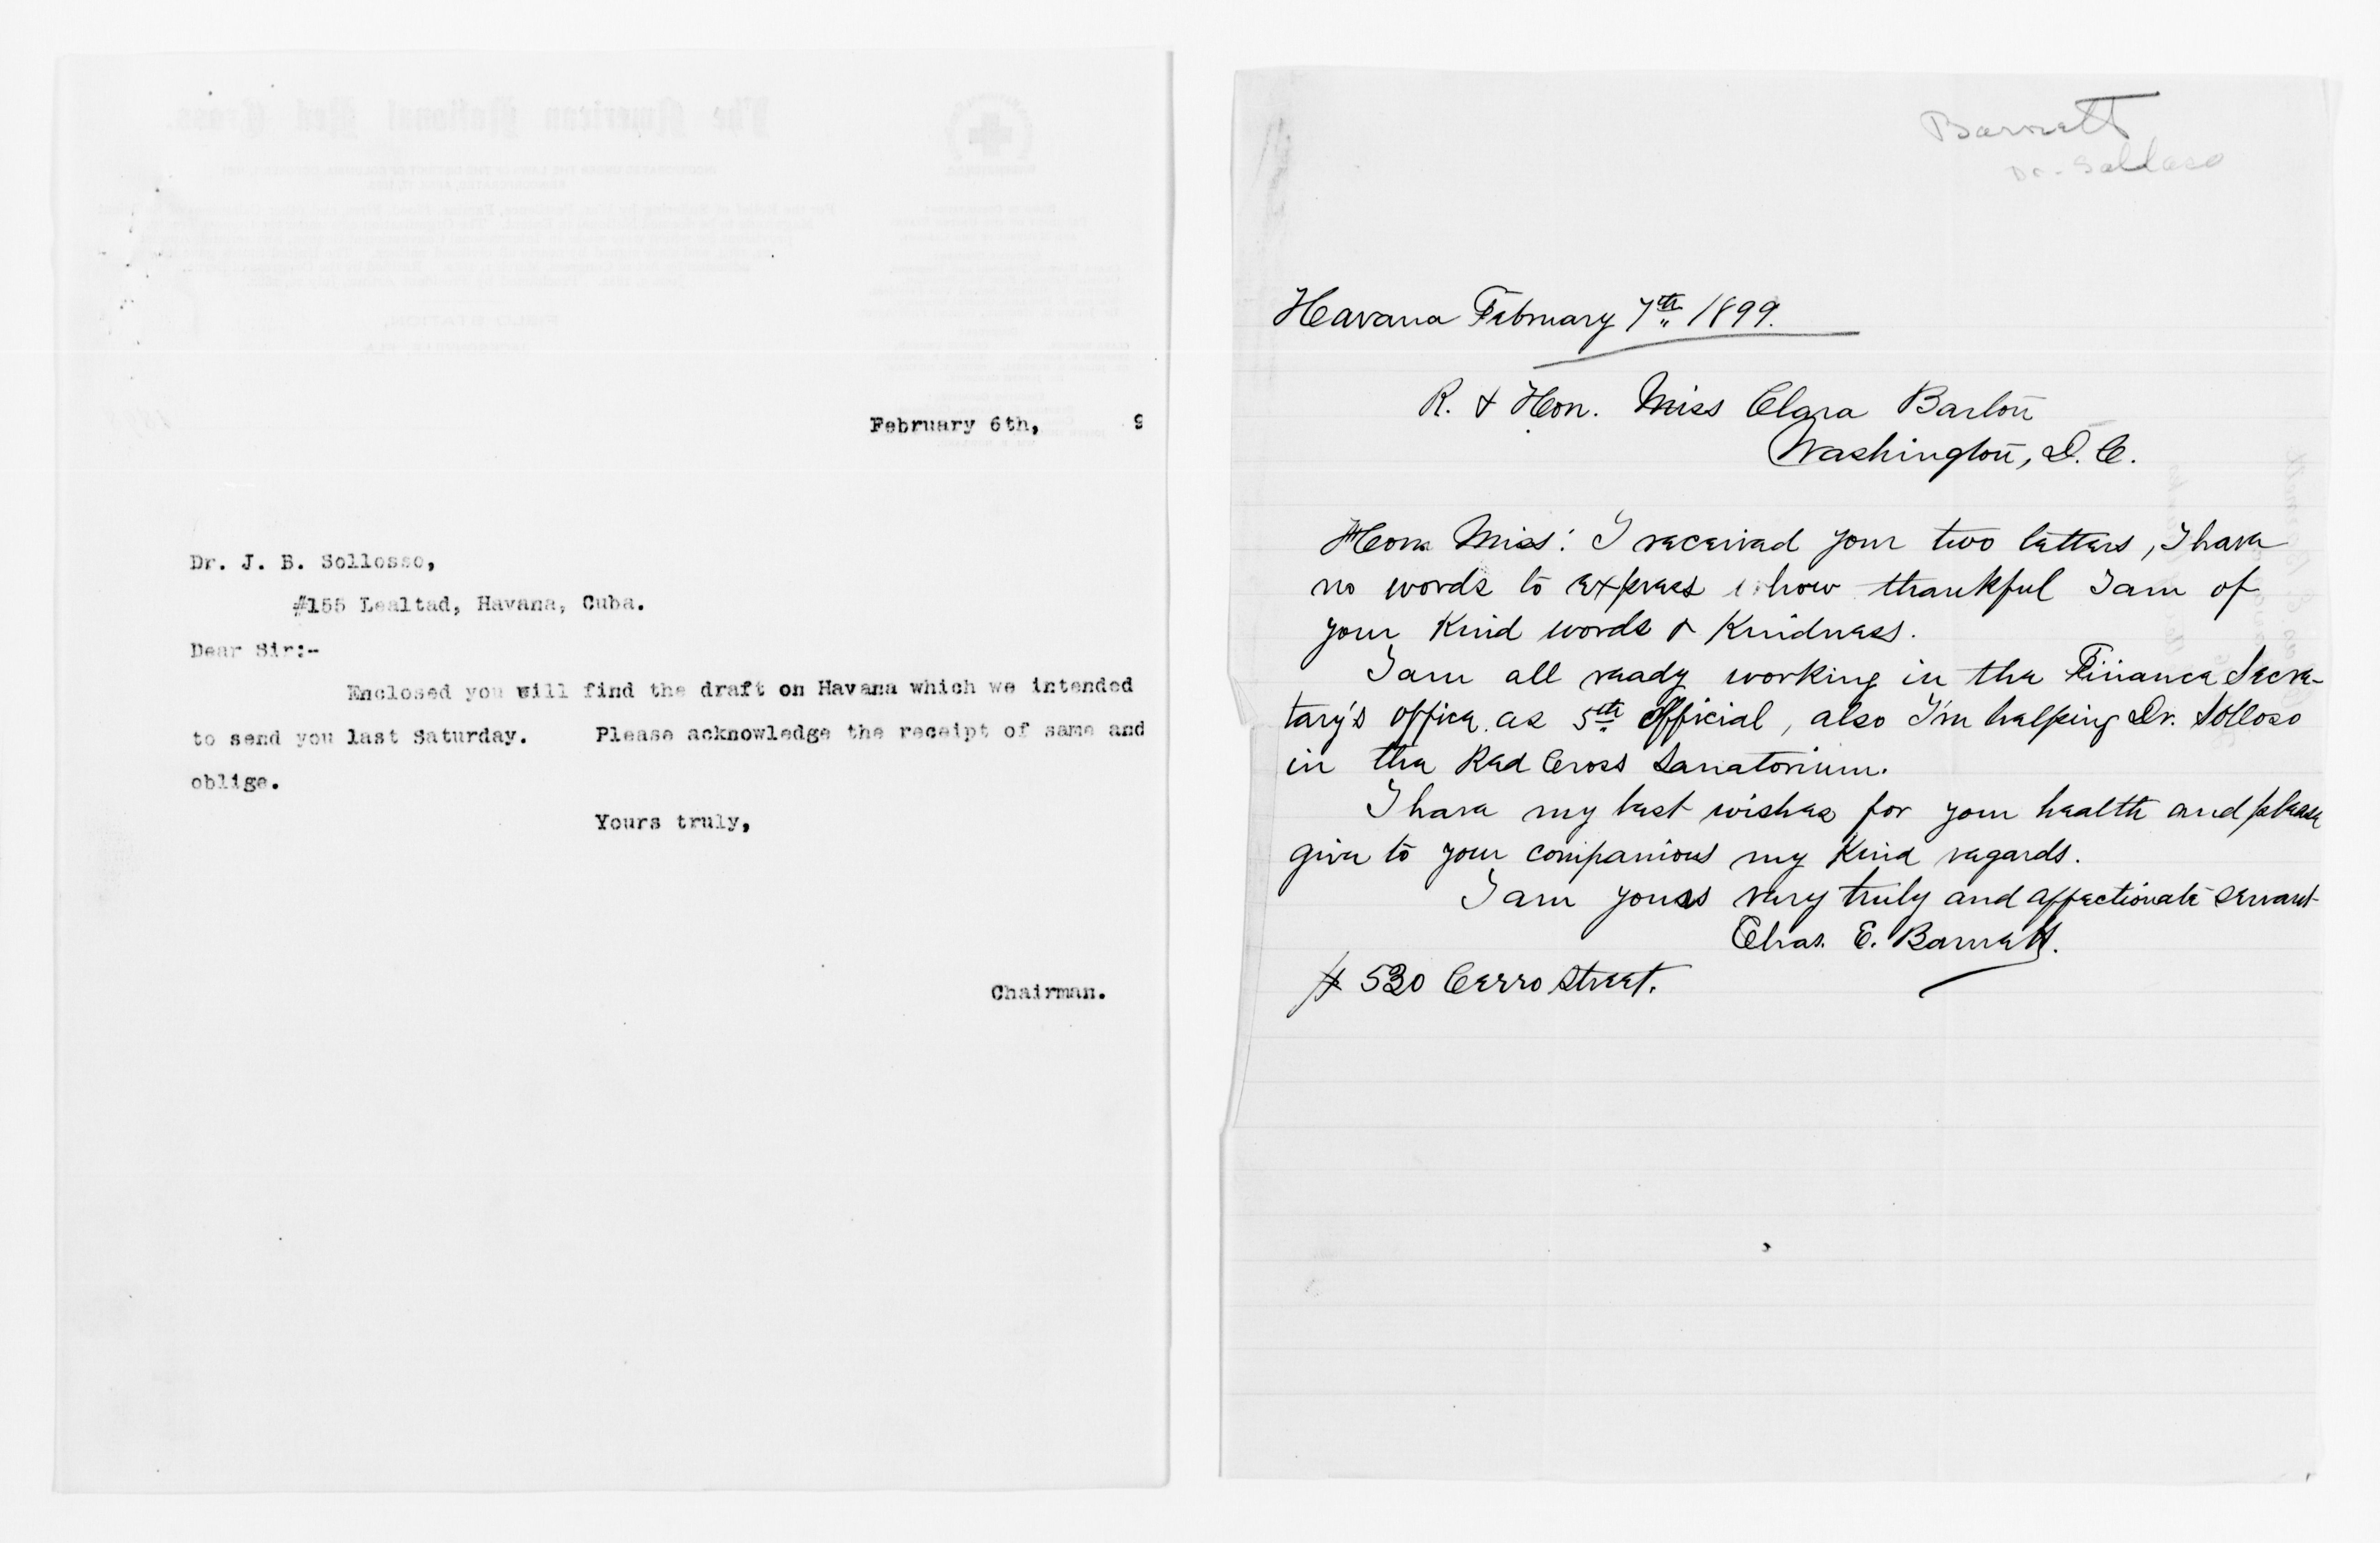 February 6th, 9
Dr. J. B. Sollosso,
#155 Lealtad, Havana, Cuba.
Dear Sir:-
Enclosed you will find the draft on Havana which we intended
to send you last Saturday. Please acknowledge the receipt of same and
oblige.
Yours truly,
Chairman.
Barnett
Dr. Solloso
Havana February 7th 1899.
R. & Hon. Miss Clara Barton
Washington, D. C.
Hon. Miss: I received your two letters, I have
no words to express how thankful I am of
your kind words & kindness.
I am all ready working in the Finance Secre-
tary's office as 5th official, also I'm helping Dr. Solloso
in the Red Cross Sanatorium.
I have my best wishes for your health and please
give to your companions my kind regards.
I am yours very truly and affectionate servant
Chas. E. Barnett.
# 530 Cerro Street.